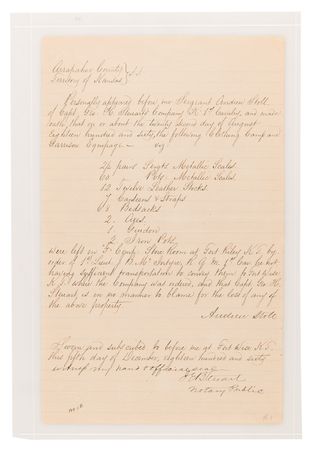 Arrapahoe County } S.S.
Territory of Kansas }
Personally appeared before me Sergeant Andrew Stoll
of Capt. Geo. H. Steuarts Company K 1st Cavalry, and made
oath, that on or about the twenty second day of August
eighteen hundred and sixty, the following Clothing Camp and
Garrison Equipage — viz
24 pairs Sergts Metallic Scales.
60 Pvts. Metallic Scales.
12 Twelve Leather Stocks.
7 & Straps
Bedsacks
2. Axes.
1. Guidon
2 Iron Pots.
were left in F Comp. Store Room at Fort Riley K.T. by
order of 1st Lieut. J. B. McIntyre, R.Q.M. 1st Cav. he not
having sufficient transportation to convey them to Fort Wise
K.T. where the Company was ordered, and that Capt. Geo. H.
Steuart, is in no manner to blame for the loss of any of
the above property.
Andrew Stoll
Sworn and subscribed to before me at Fort Wise K.T.
this fifth day of December, eighteen hundred and sixty
witness my hand &
Notary Public